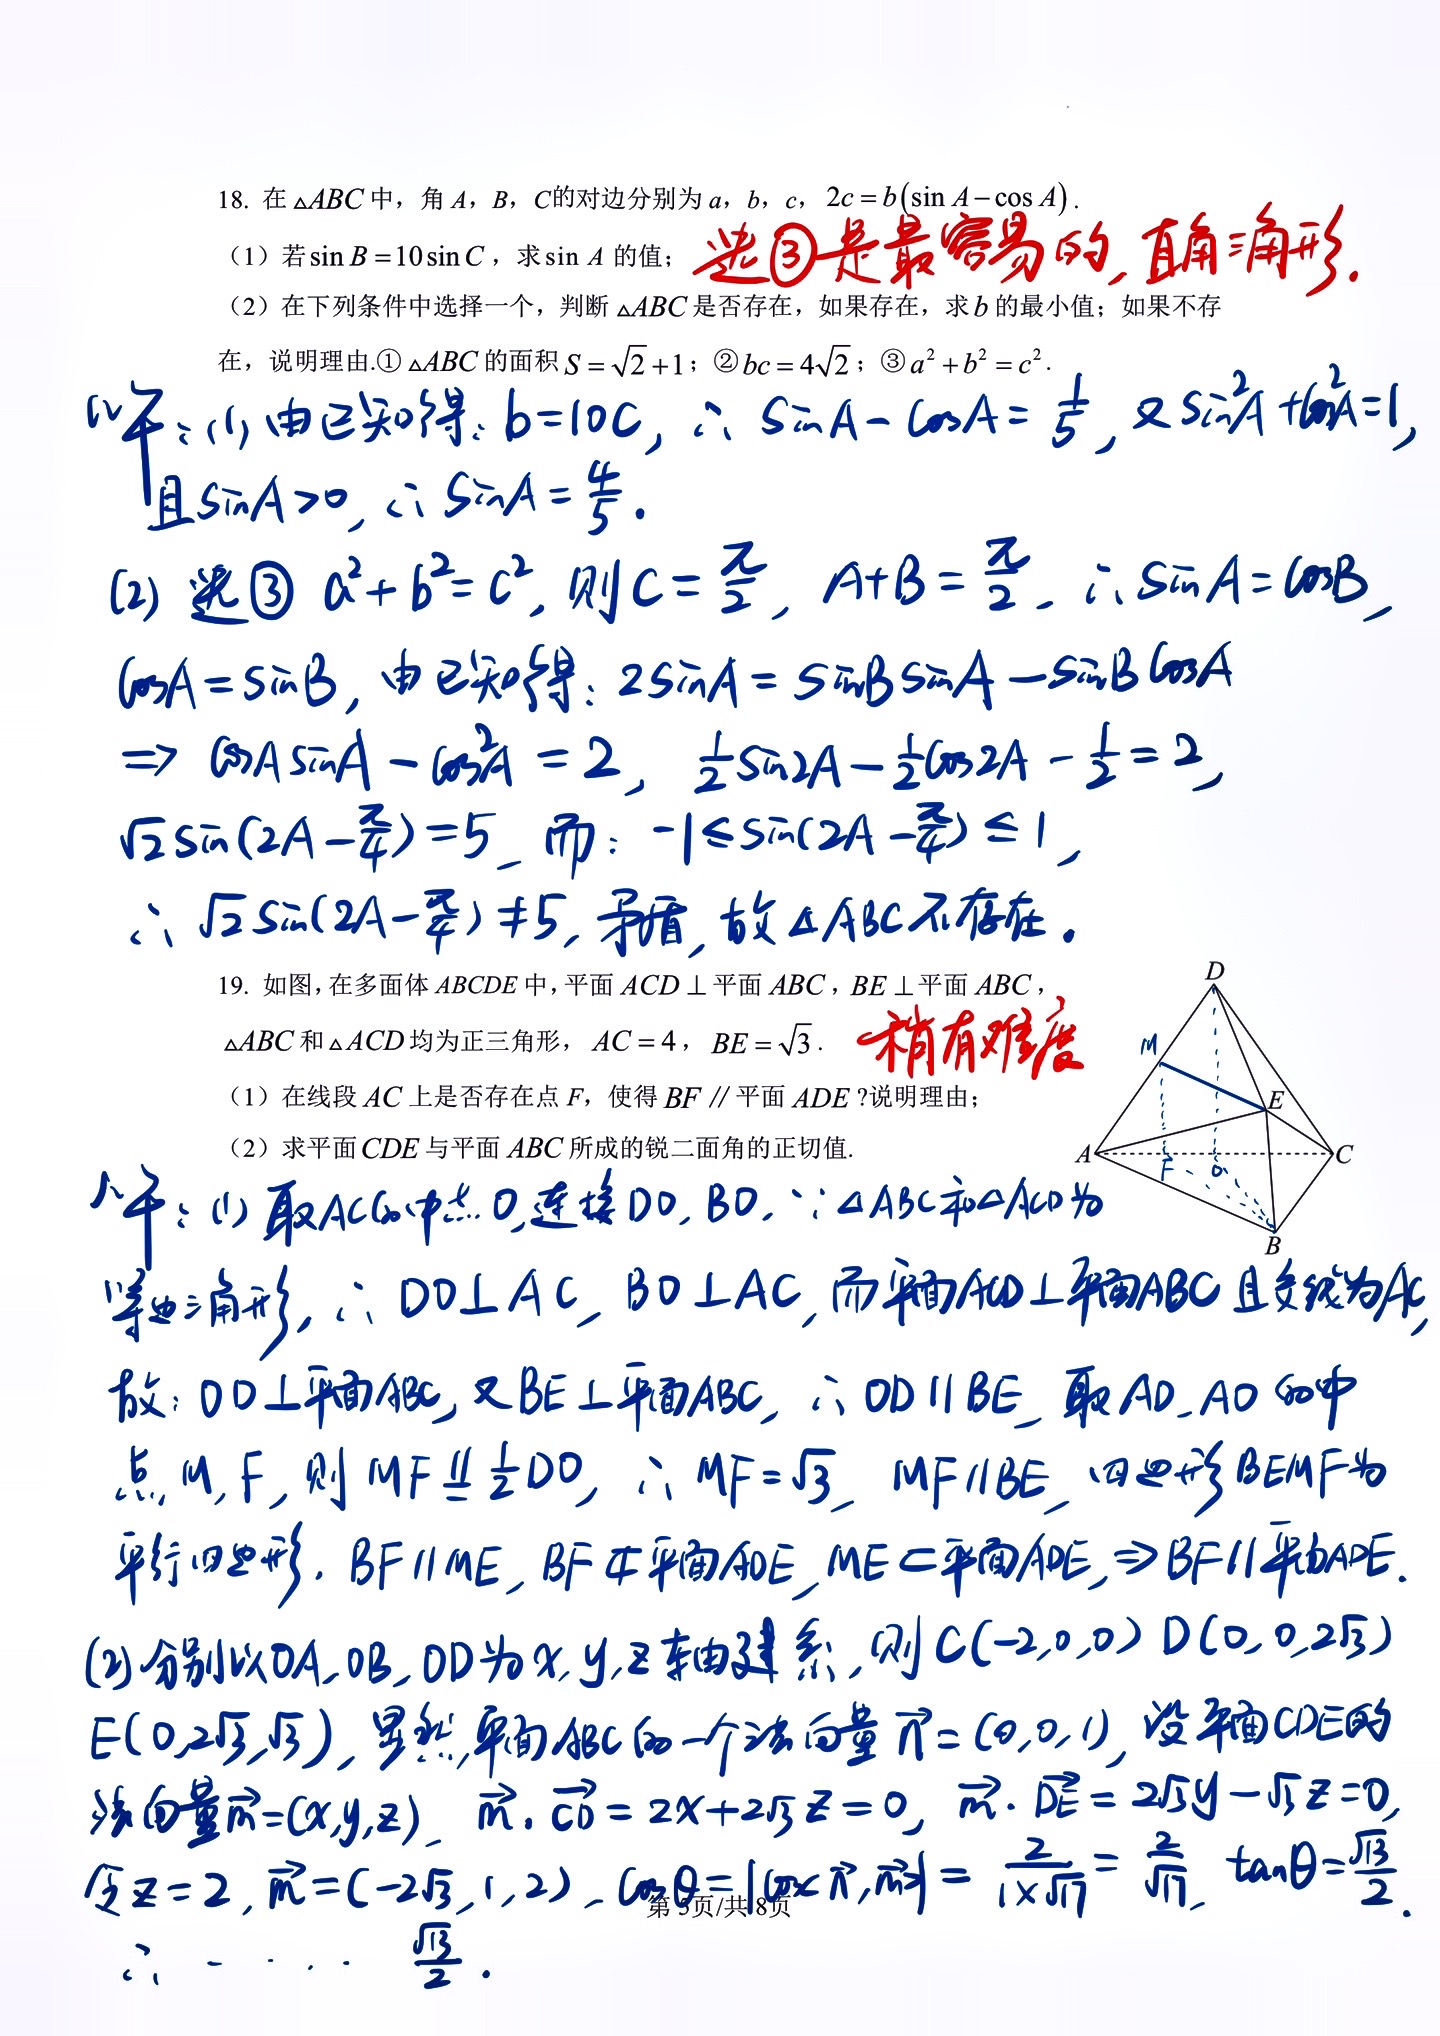 18. 在 △ABC 中，角 A，B，C的对边分别为 a，b，c，2c = b(sin A − cos A).
（1）若 sin B = 10 sin C，求 sin A 的值；
选③是最容易的，直角三角形.
（2）在下列条件中选择一个，判断 △ABC 是否存在，如果存在，求 b 的最小值；如果不存
在，说明理由.① △ABC 的面积 S = √2 + 1；② bc = 4√2；③ a² + b² = c².
解：(1) 由已知得：b=10c，∴ sinA − cosA = 1/5，又 sin²A + cos²A = 1，
且 sinA > 0，∴ sinA = 4/5.
(2) 选③ a² + b² = c²，则 C = π/2，A+B = π/2，∴ sinA = cosB，
cosA = sinB，由已知得：2sinA = sinBsinA − sinBcosA
⇒ cosAsinA − cos²A = 2，1/2 sin2A − 1/2 cos2A − 1/2 = 2，
√2 sin(2A − π/4) = 5，而：−1 ≤ sin(2A − π/4) ≤ 1，
∴ √2 sin(2A − π/4) ≠ 5，矛盾，故△ABC不存在.
19. 如图，在多面体 ABCDE 中，平面 ACD ⊥ 平面 ABC，BE ⊥ 平面 ABC，
△ABC 和 △ACD 均为正三角形，AC = 4，BE = √3.
稍有难度
（1）在线段 AC 上是否存在点 F，使得 BF // 平面 ADE ?说明理由；
（2）求平面 CDE 与平面 ABC 所成的锐二面角的正切值.
D
M
E
A
F
O
C
B
解：(1) 取AC的中点O，连接DO，BO，∵△ABC和△ACD为
等边三角形，∴ DO⊥AC，BO⊥AC，而平面ACD⊥平面ABC且交线为AC，
故：OD⊥平面ABC，又BE⊥平面ABC，∴ OD∥BE，取AD、AO的中
点M，F，则 MF ∥= 1/2 DO，∴ MF = √3，MF∥BE，四边形BEMF为
平行四边形. BF∥ME，BF⊄平面ADE，ME⊂平面ADE，⇒BF∥平面ADE.
(2) 分别以OA，OB，OD为x，y，z轴建系，则C(−2,0,0) D(0,0,2√3)
E(0,2√3,√3)，显然，平面ABC的一个法向量 n⃗ = (0,0,1)，设平面CDE的
法向量m⃗=(x,y,z)，m⃗·CD⃗ = 2x+2√3z = 0，m⃗·DE⃗ = 2√3y − √3z = 0，
令z = 2，m⃗ = (−2√3,1,2)，cosθ = |cos<n⃗,m⃗>| = 2/(1×√17) = 2/√17，tanθ = √13/2.
第 5页/共 8页
∴ - · · · · √13/2.